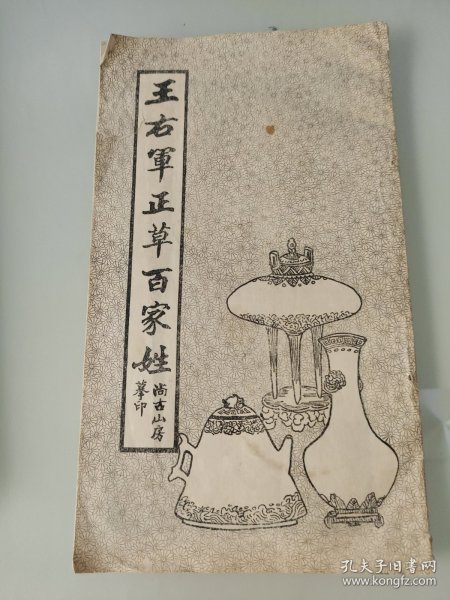 王右軍正草百家姓
尚古山房
摹印
孔夫子旧书网
www.kongfz.com